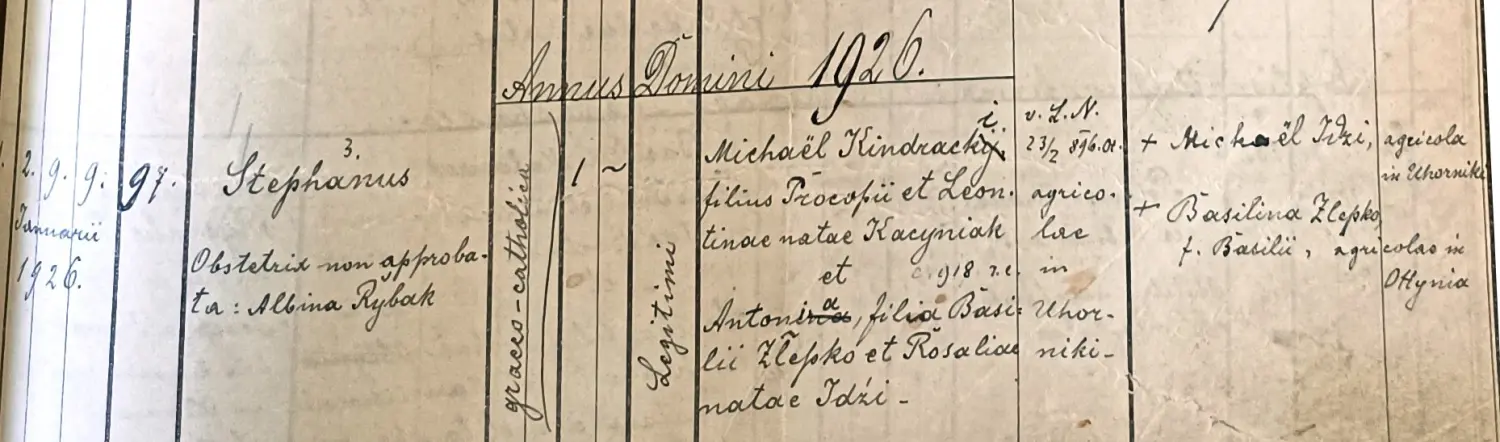 Annus Domini 1926.
2. 9. 9. 97.
Januarii
1926.
3.
Stephanus
Obstetrix non approba-
ta: Albina Rybak
graeco-catholica
1 ~
Legitimi
Michaël Kindracki
filius Procopii et Leon-
tinae natae Kacyniak
et
Antonina, filia Basi-
lii Zlepko et Rosaliae
natae Idźi -
v. L. N.
23/2 896. Ot.
agrico-
lae
c. 918 r.l.
in
Uhor-
niki -
+ Michaël Idzi, agricola
in Uhorniki
+ Basilina Zlepko,
f. Basilii, agricolae in
Ottynia